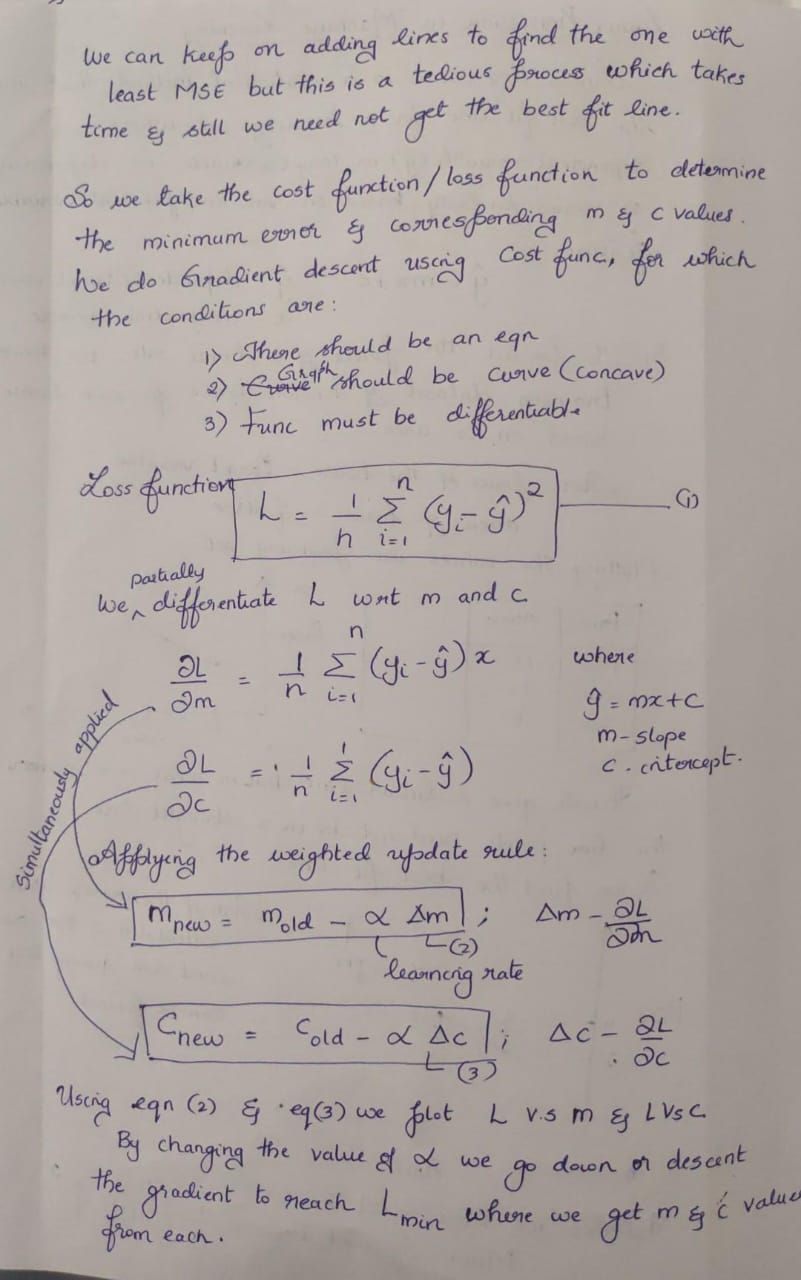 We can keep on adding lines to find the one with
least MSE but this is a tedious process which takes
time & still we need not get the best fit line.
So we take the cost function/loss function to determine
the minimum error & corresponding m & c values.
We do Gradient descent using Cost func, for which
the conditions are:
1) There should be an eqn
2) Graph should be curve (concave)
3) Func must be differentiable
Loss function L = 1/n Σ_{i=1}^{n} (y_i - ŷ)² —— (1)
We partially differentiate L wrt m and c
∂L/∂m = 1/n Σ_{i=1}^{n} (y_i - ŷ) x where
ŷ = mx+c
m - slope
∂L/∂c = 1/n Σ_{i=1}^{1} (y_i - ŷ) c - intercept.
Simultaneously applied
Applying the weighted update rule:
m_new = m_old - α Δm ; Δm - ∂L/∂m
(2)
learning rate
C_new = C_old - α Δc ; Δc - ∂L/∂c
(3)
Using eqn (2) & eq(3) we plot L v.s m & L Vs C
By changing the value of α we go down or descent
the gradient to reach L_min where we get m & c value
from each.